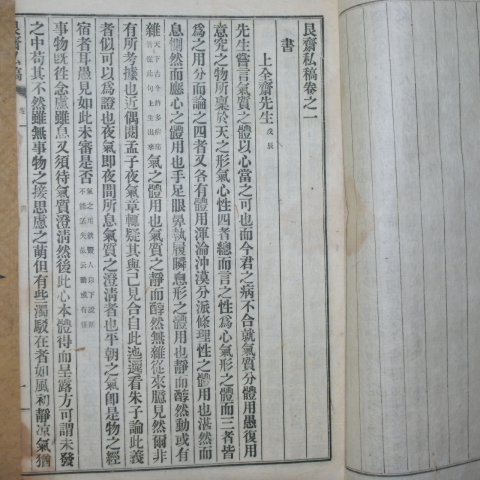 艮齋私稿卷之一
書
上全齋先生 戊辰
先生嘗言氣質之體以心當之可也而今君之病不合就氣質分體用愚復用
意究之物所稟於天之形氣心性四者總而言之性爲心氣形之體而三者皆
爲之用分而論之四者又各有體用渾淪沖漠分派條理性之體用也湛然而
息惻然而應心之體用也手足眼鼻執履瞬息形之體用也靜而醇然動或有
雜 氣之體用也氣質之靜而醇然無雜從來臆見然爾非
有所考據也近偶閱孟子夜氣章輒疑其與己見合自此迤邐看朱子論此義
者似可以爲證也夜氣卽夜間所息氣質之澄清者也平朝之氣卽是物之經
宿者耳愚見如此未審是否
事物旣往念慮雖息又須待氣質澄淸然後此心本體得而呈露方可謂未發
之中苟其不然雖無事物之接思慮之萌但有些濁駁在者如風初靜凉氣猶
艮齋私稿